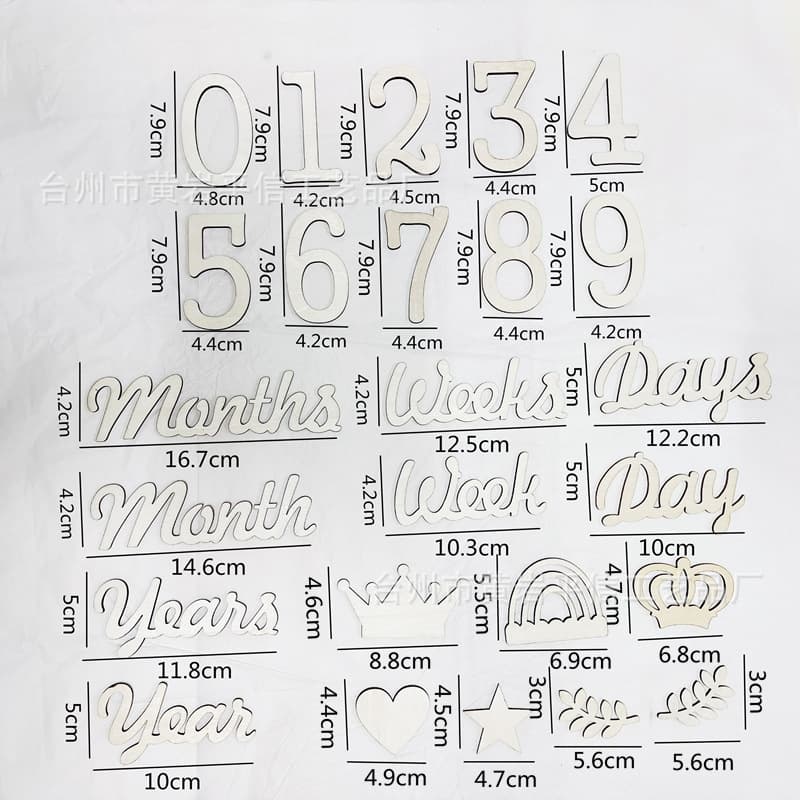 0 1 2 3 4
7.9cm 7.9cm 7.9cm 7.9cm 7.9cm
台州市黄岩平信工艺品厂
4.8cm 4.2cm 4.5cm 4.4cm 5cm
5 6 7 8 9
7.9cm 7.9cm 7.9cm 7.9cm 7.9cm
4.4cm 4.2cm 4.4cm 4.4cm 4.2cm
4.2cm Months 4.2cm Weeks 5cm Days
16.7cm 12.5cm 12.2cm
4.2cm Month 4.2cm Week 5cm Day
14.6cm 10.3cm 10cm
5cm Years 4.6cm 5.5cm 4.7cm
台州市黄岩平信工艺品厂
11.8cm 8.8cm 6.9cm 6.8cm
5cm Year 4.4cm 4.5cm 3cm 3cm
10cm 4.9cm 4.7cm 5.6cm 5.6cm